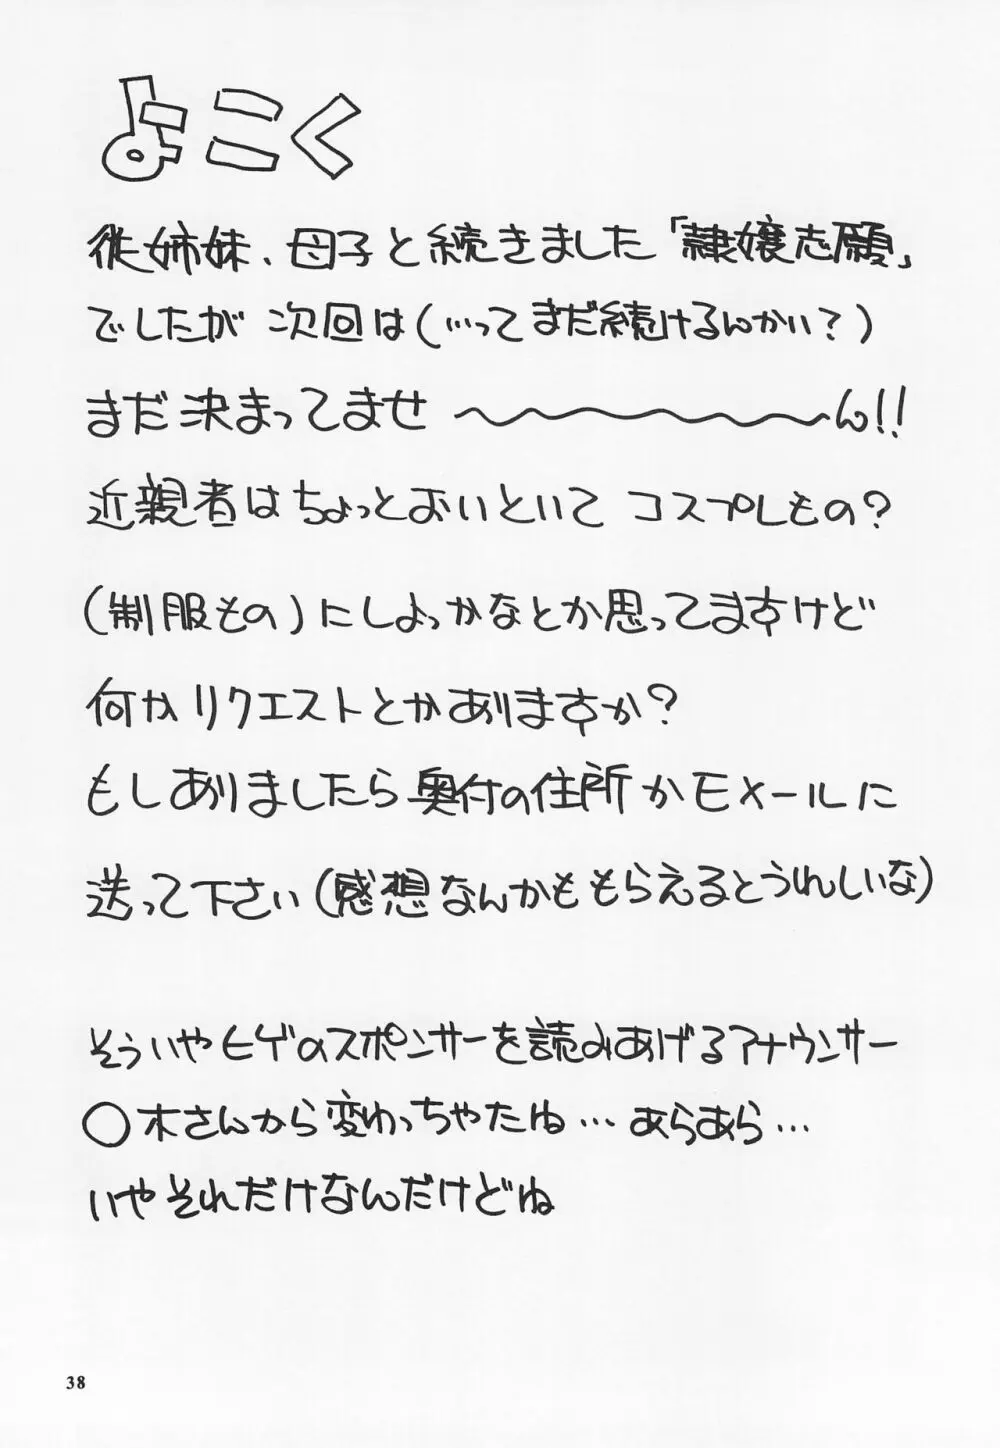 よこく
従姉妹、母子と続きました「隷嬢志願」
でしたが 次回は(…ってまだ続けるんかい?)
まだ決まってませ〜〜〜〜〜〜ん!!
近親者はちょっとおいといて コスプレもの?
(制服もの)にしよっかなとか思ってますけど
何かリクエストとかありますか?
もしありましたら奥付の住所かEメールに
送って下さい(感想なんかももらえるとうれしいな)
そういやヒゲのスポンサーを読みあげるアナウンサー
○木さんから変わっちゃたね…あらあら…
いやそれだけなんだけどね
38